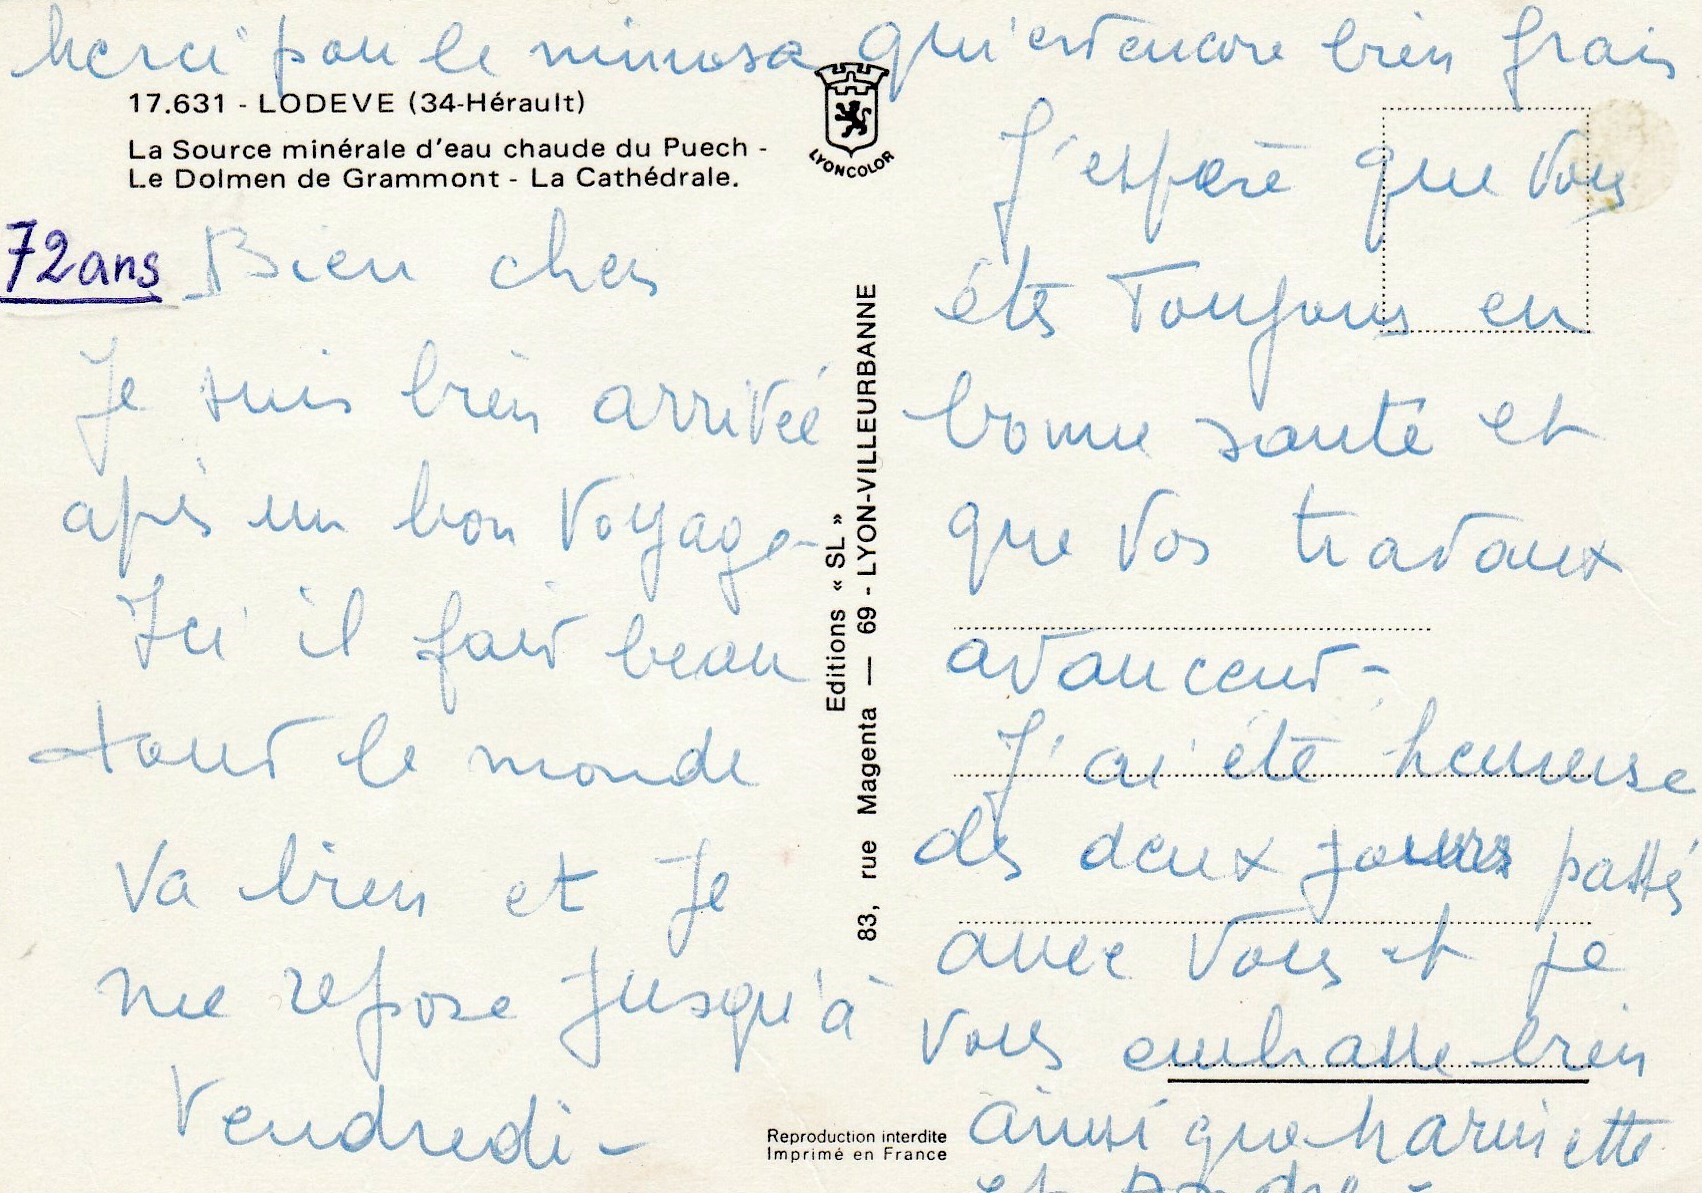 merci pour le mimosa qui est encore bien frais
17.631 - LODEVE (34-Hérault)
La Source minérale d'eau chaude du Puech -
Le Dolmen de Grammont - La Cathédrale.
LYONCOLOR
72ans
Bien chers
Je suis bien arrivée
après un bon voyage-
Ici il fait beau
tout le monde
va bien et je
me repose jusqu'à
Vendredi-
Editions « SL »
83, rue Magenta — 69 - LYON-VILLEURBANNE
Reproduction interdite
Imprimé en France
J'espère que vous
étés toujours en
bonne santé et
que vos travaux
avancent-
J'ai été heureuse
des deux jours passés
avec vous et je
vous embrasse bien
ainsi que Mariette
et André-